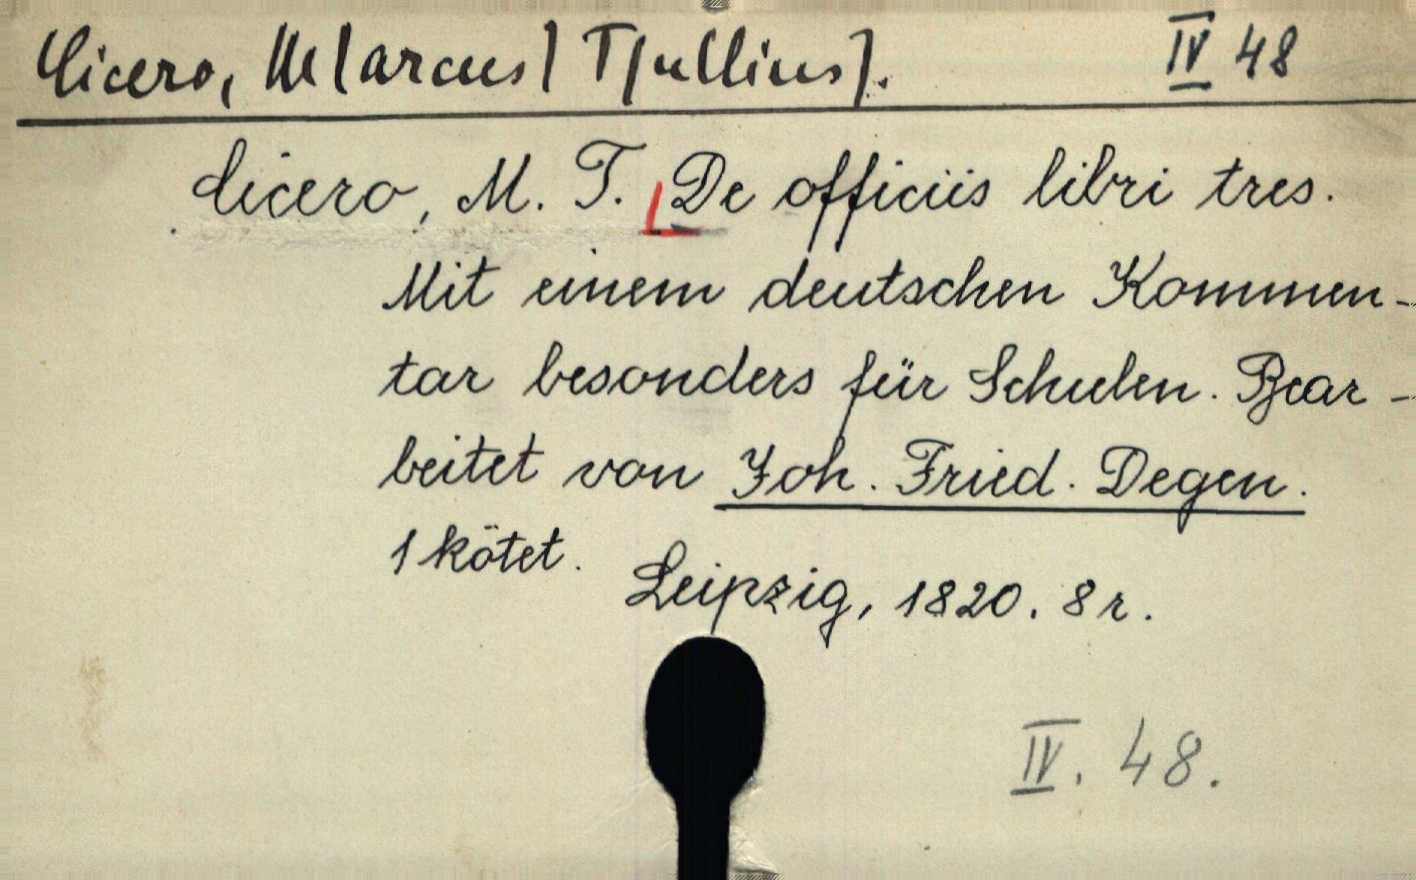 Cicero, M[arcus] T[ullius]. IV 48
Cicero, M. T. De officiis libri tres.
Mit einem deutschen Kommen-
tar besonders für Schulen. Bear-
beitet von Joh. Fried. Degen.
1 kötet.
Leipzig, 1820. 8 r.
IV. 48.